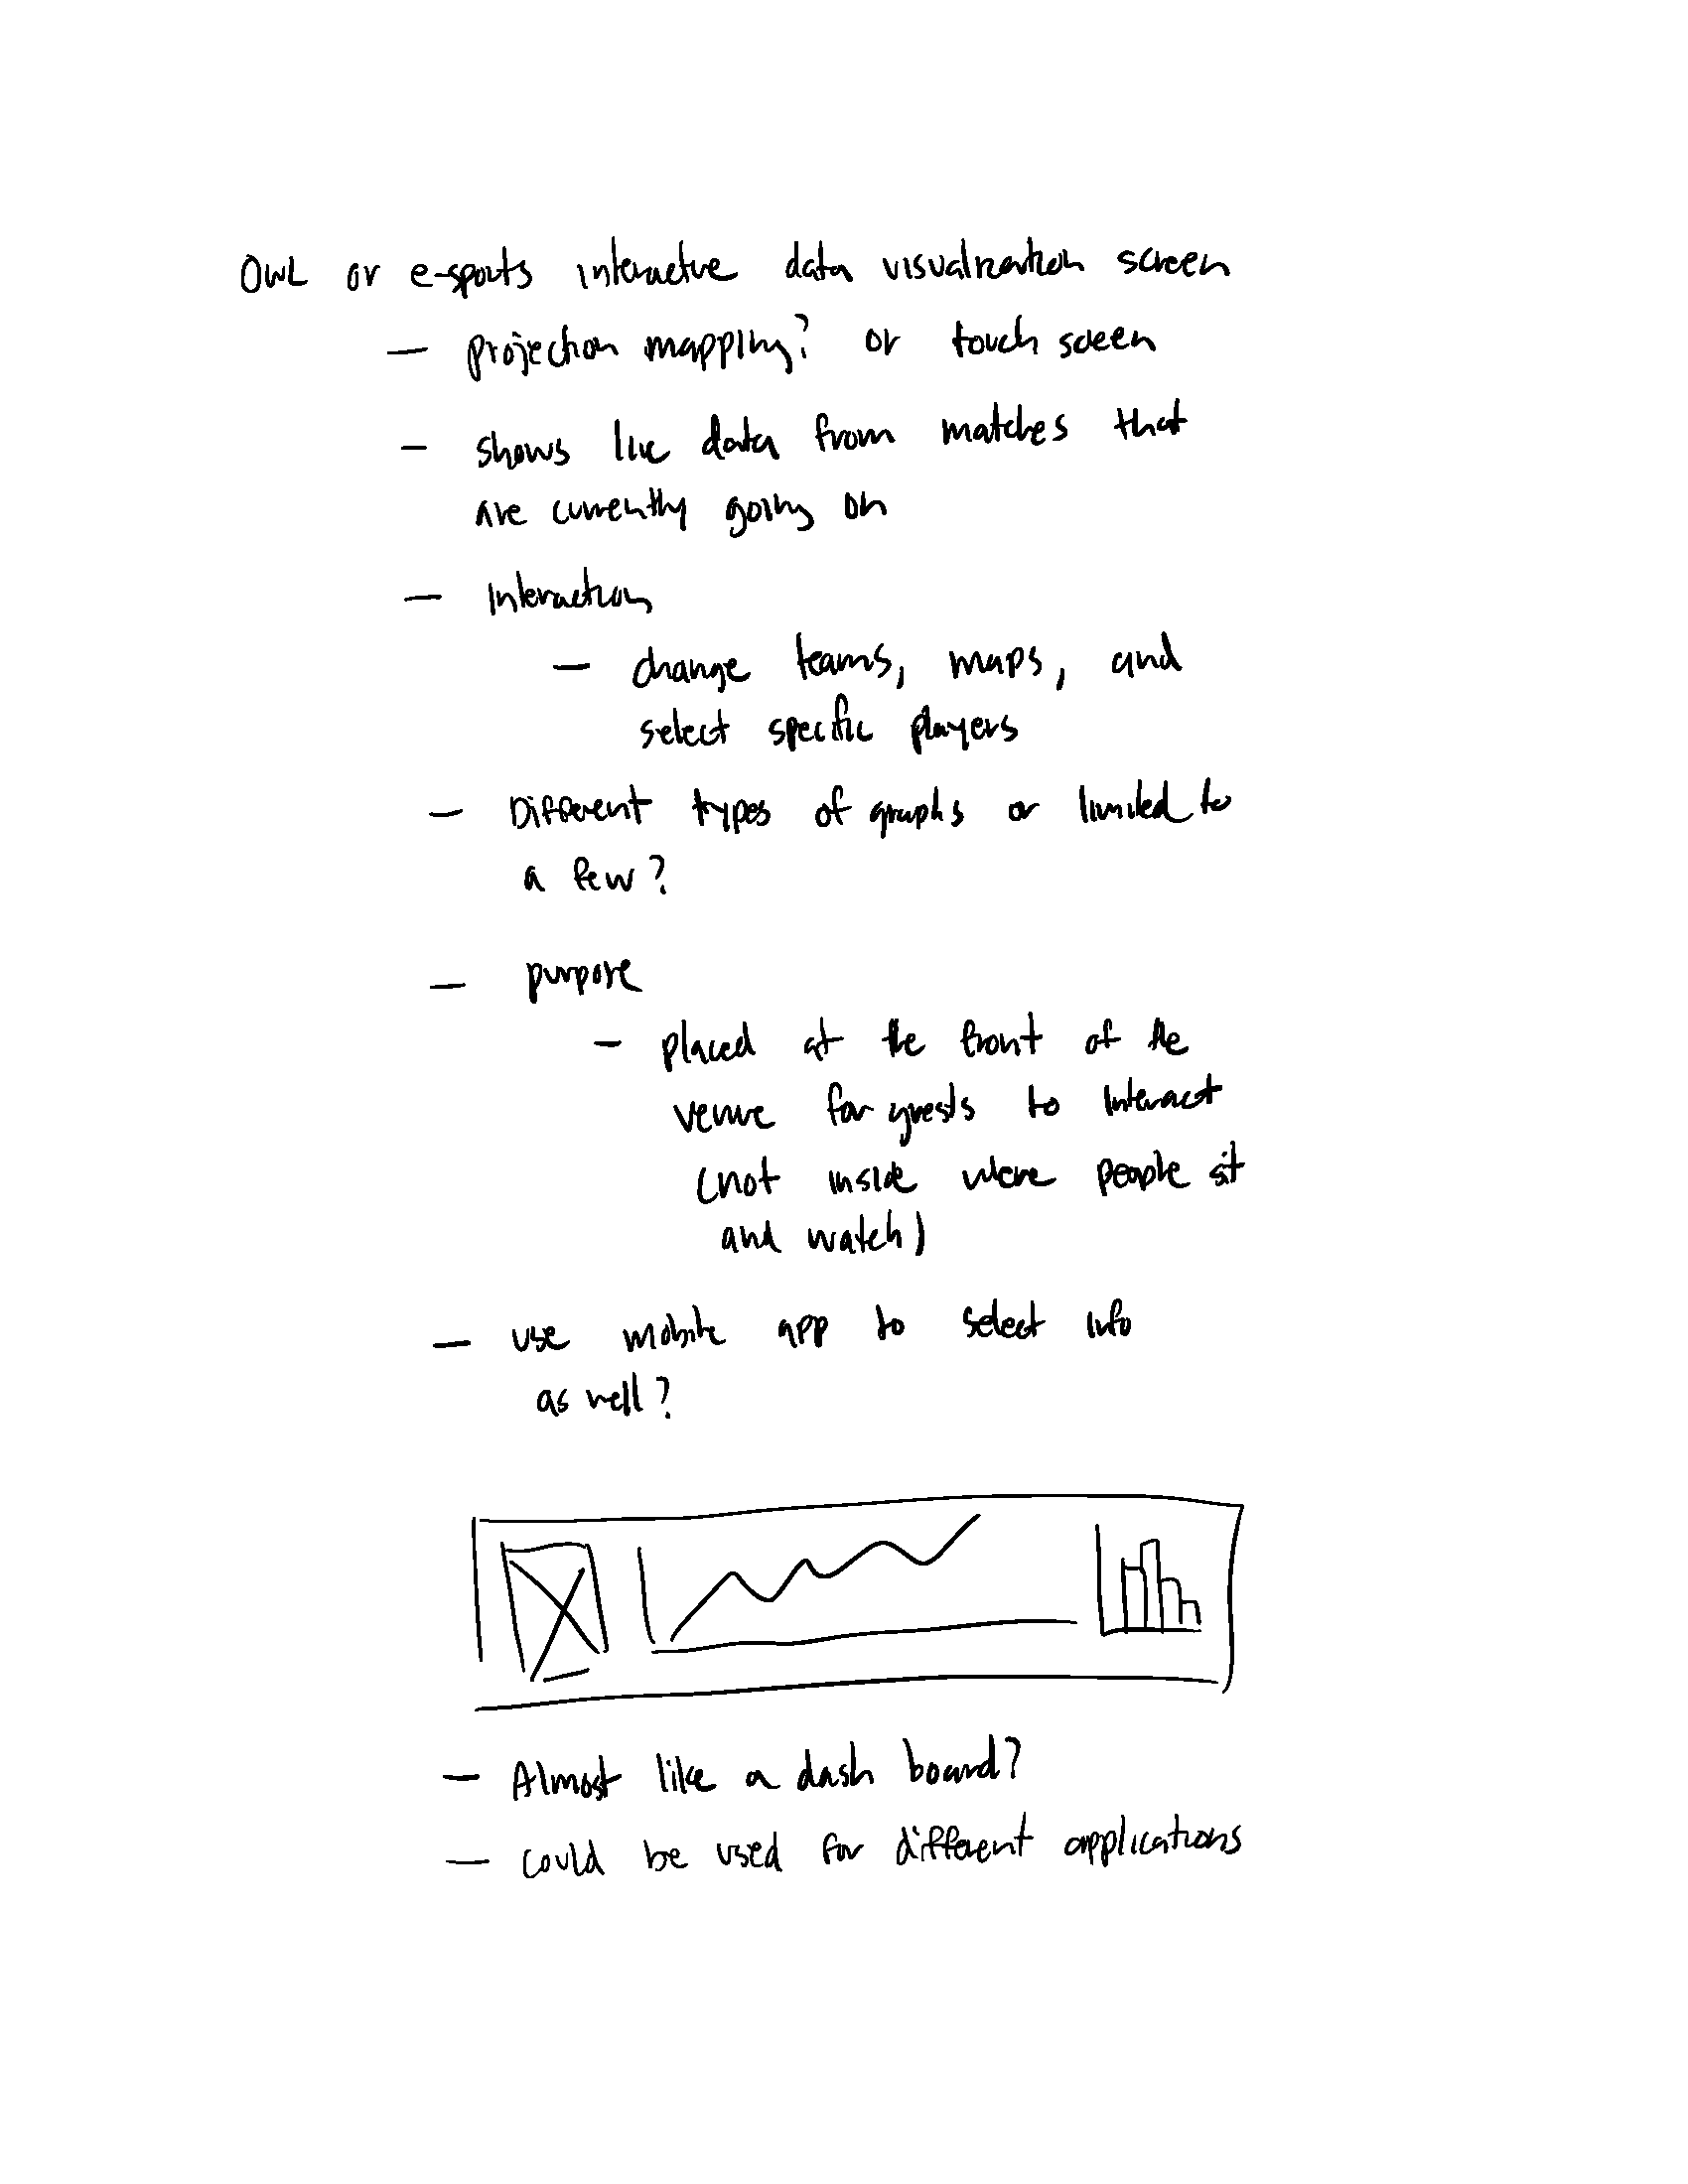 OWL or e-sports interactive data visualization screen
— projection mapping? or touch screen
— shows live data from matches that
are currently going on
— Interaction
— change teams, maps, and
select specific players
— Different types of graphs or limited to
a few?
— purpose
— placed at the front of the
venue for guests to interact
(not inside where people sit
and watch)
— use mobile app to select info
as well?
— Almost like a dash board?
— could be used for different applications